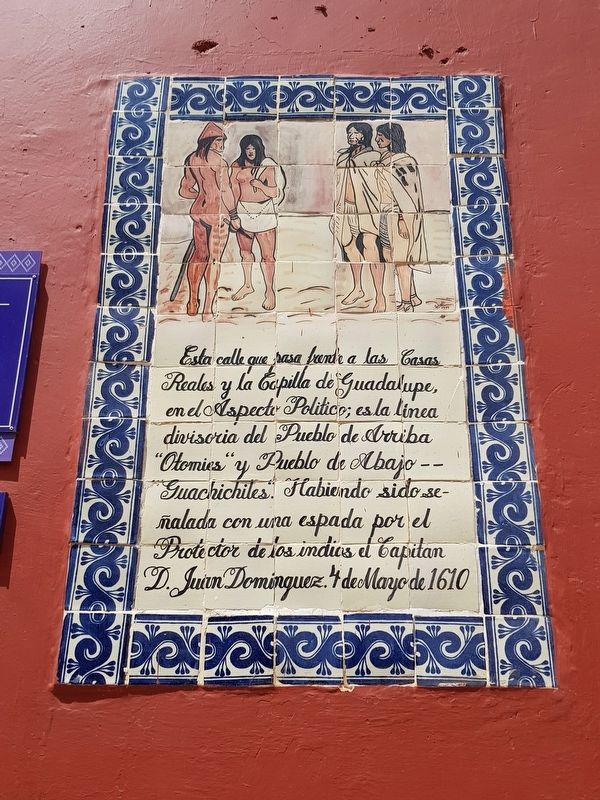 Esta calle que pasa frente a las Casas
Reales y la Capilla de Guadalupe,
en el Aspecto Politico; es la linea
divisoria del Pueblo de Arriba
"Otomies" y Pueblo de Abajo --
"Guachichiles. Habiendo sido se-
ñalada con una espada por el
Protector de los indios el Capitan
D. Juan Dominguez. 4 de Mayo de 1610